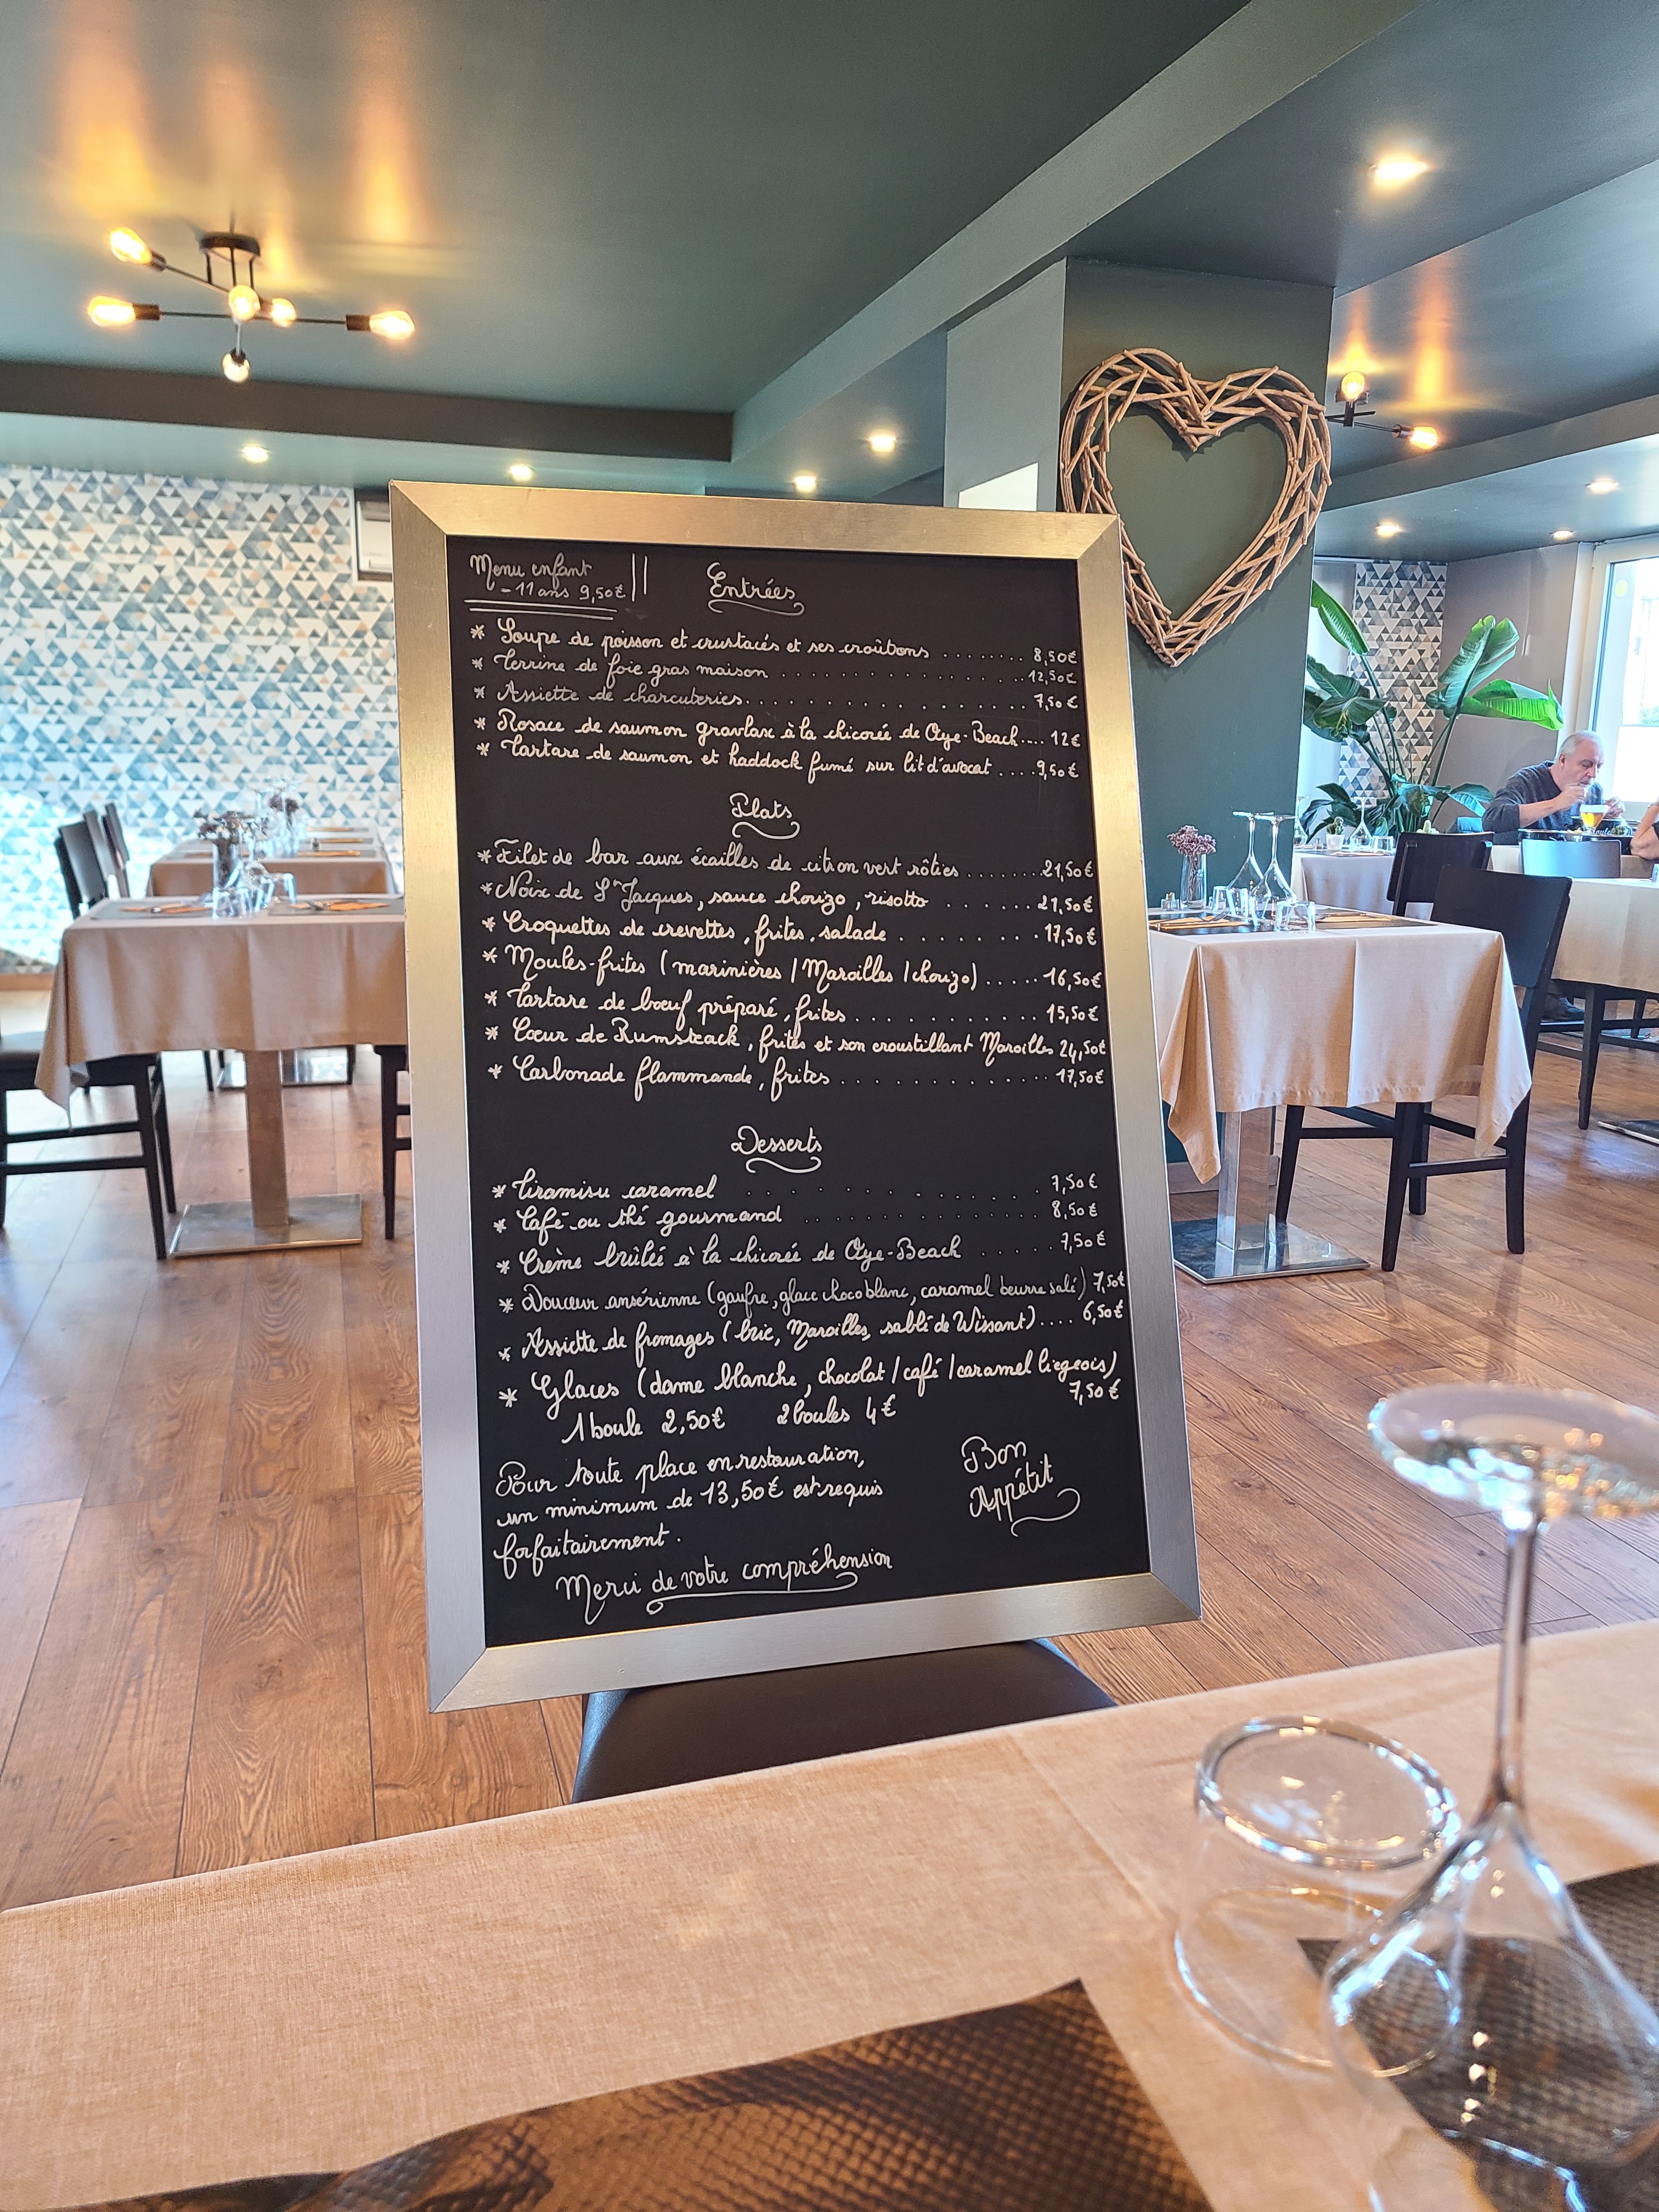 Menu enfant
- 11 ans 9,50€
Entrées
* Soupe de poisson et crustacés et ses croûtons ........ 8,50€
* Terrine de foie gras maison .................. 12,50€
* Assiette de charcuteries.................. 7,50€
* Rosace de saumon gravlax à la chicorée de Oye-Beach.... 12€
* Tartare de saumon et haddock fumé sur lit d'avocat .... 9,50€
Plats
* Filet de bar aux écailles de citron vert rôties ........ 21,50€
* Noix de St Jacques, sauce chorizo, risotto ....... 21,50€
* Croquettes de crevettes, frites, salade ......... 17,50€
* Moules-frites (marinières / Maroilles / chorizo) ..... 16,50€
* Tartare de bœuf préparé, frites ........... 15,50€
* Cœur de Rumsteack, frites et son croustillant Maroilles 24,50€
* Carbonade flammande, frites ............. 17,50€
Desserts
* Tiramisu caramel ............ 7,50€
* Café ou thé gourmand ............. 8,50€
* Crème brûlée à la chicorée de Oye-Beach ..... 7,50€
* Douceur ansérienne (gaufre, glace choco blanc, caramel beurre salé) 7,50€
* Assiette de fromages (brie, Maroilles, sablé de Wissant).... 6,50€
* Glaces (dame blanche, chocolat / café / caramel liégeois)
7,50€
1 boule 2,50€ 2 boules 4€
Pour toute place en restauration,
un minimum de 13,50€ est requis
forfaitairement.
Merci de votre compréhension
Bon
Appétit